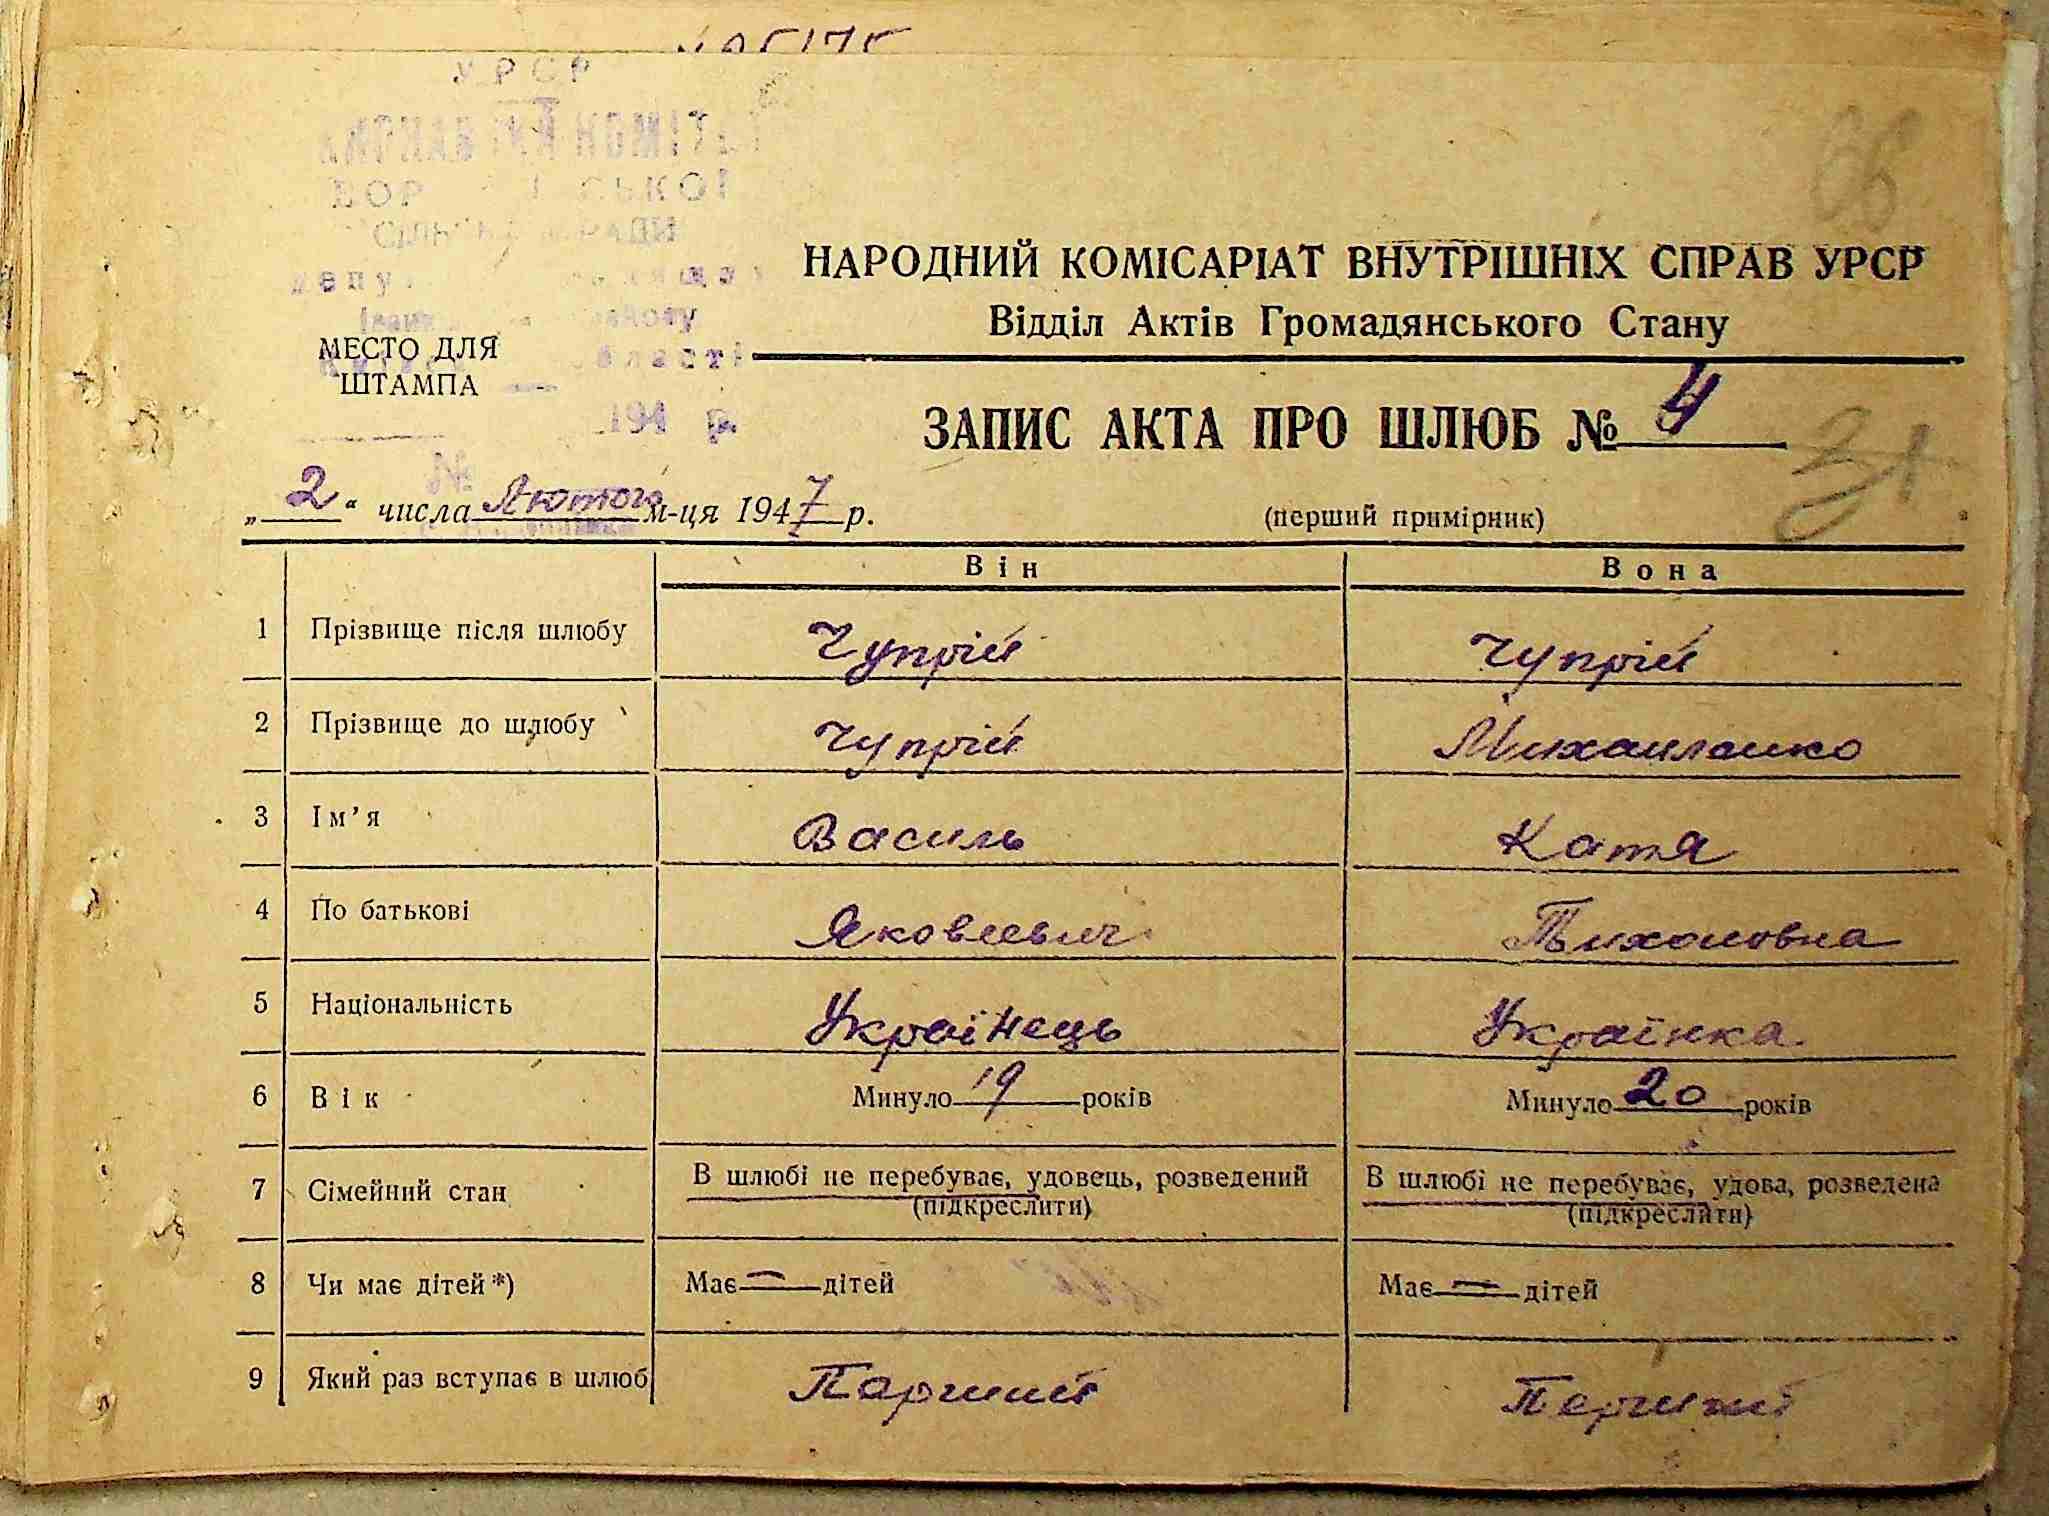 УРСР
СІЛЬСЬКОЇ РАДИ
області
194 р.
№
66
НАРОДНИЙ КОМІСАРІАТ ВНУТРІШНІХ СПРАВ УРСР
Відділ Актів Громадянського Стану
МЕСТО ДЛЯ
ШТАМПА
ЗАПИС АКТА ПРО ШЛЮБ № 4
31
„2“ числа Лютого м-ця 1947 р.
(перший примірник)
Він Вона
1 Прізвище після шлюбу Чупрій Чупрій
2 Прізвище до шлюбу Чупрій Михайленко
3 Ім’я Василь Катя
4 По батькові Яковлевич Тихоновна
5 Національність Українець Українка
6 Вік Минуло 19 років Минуло 20 років
7 Сімейний стан В шлюбі не перебуває, удовець, розведений В шлюбі не перебуває, удова, розведена
(підкреслити) (підкреслити)
8 Чи має дітей*) Має — дітей Має — дітей
9 Який раз вступає в шлюб Перший Перший